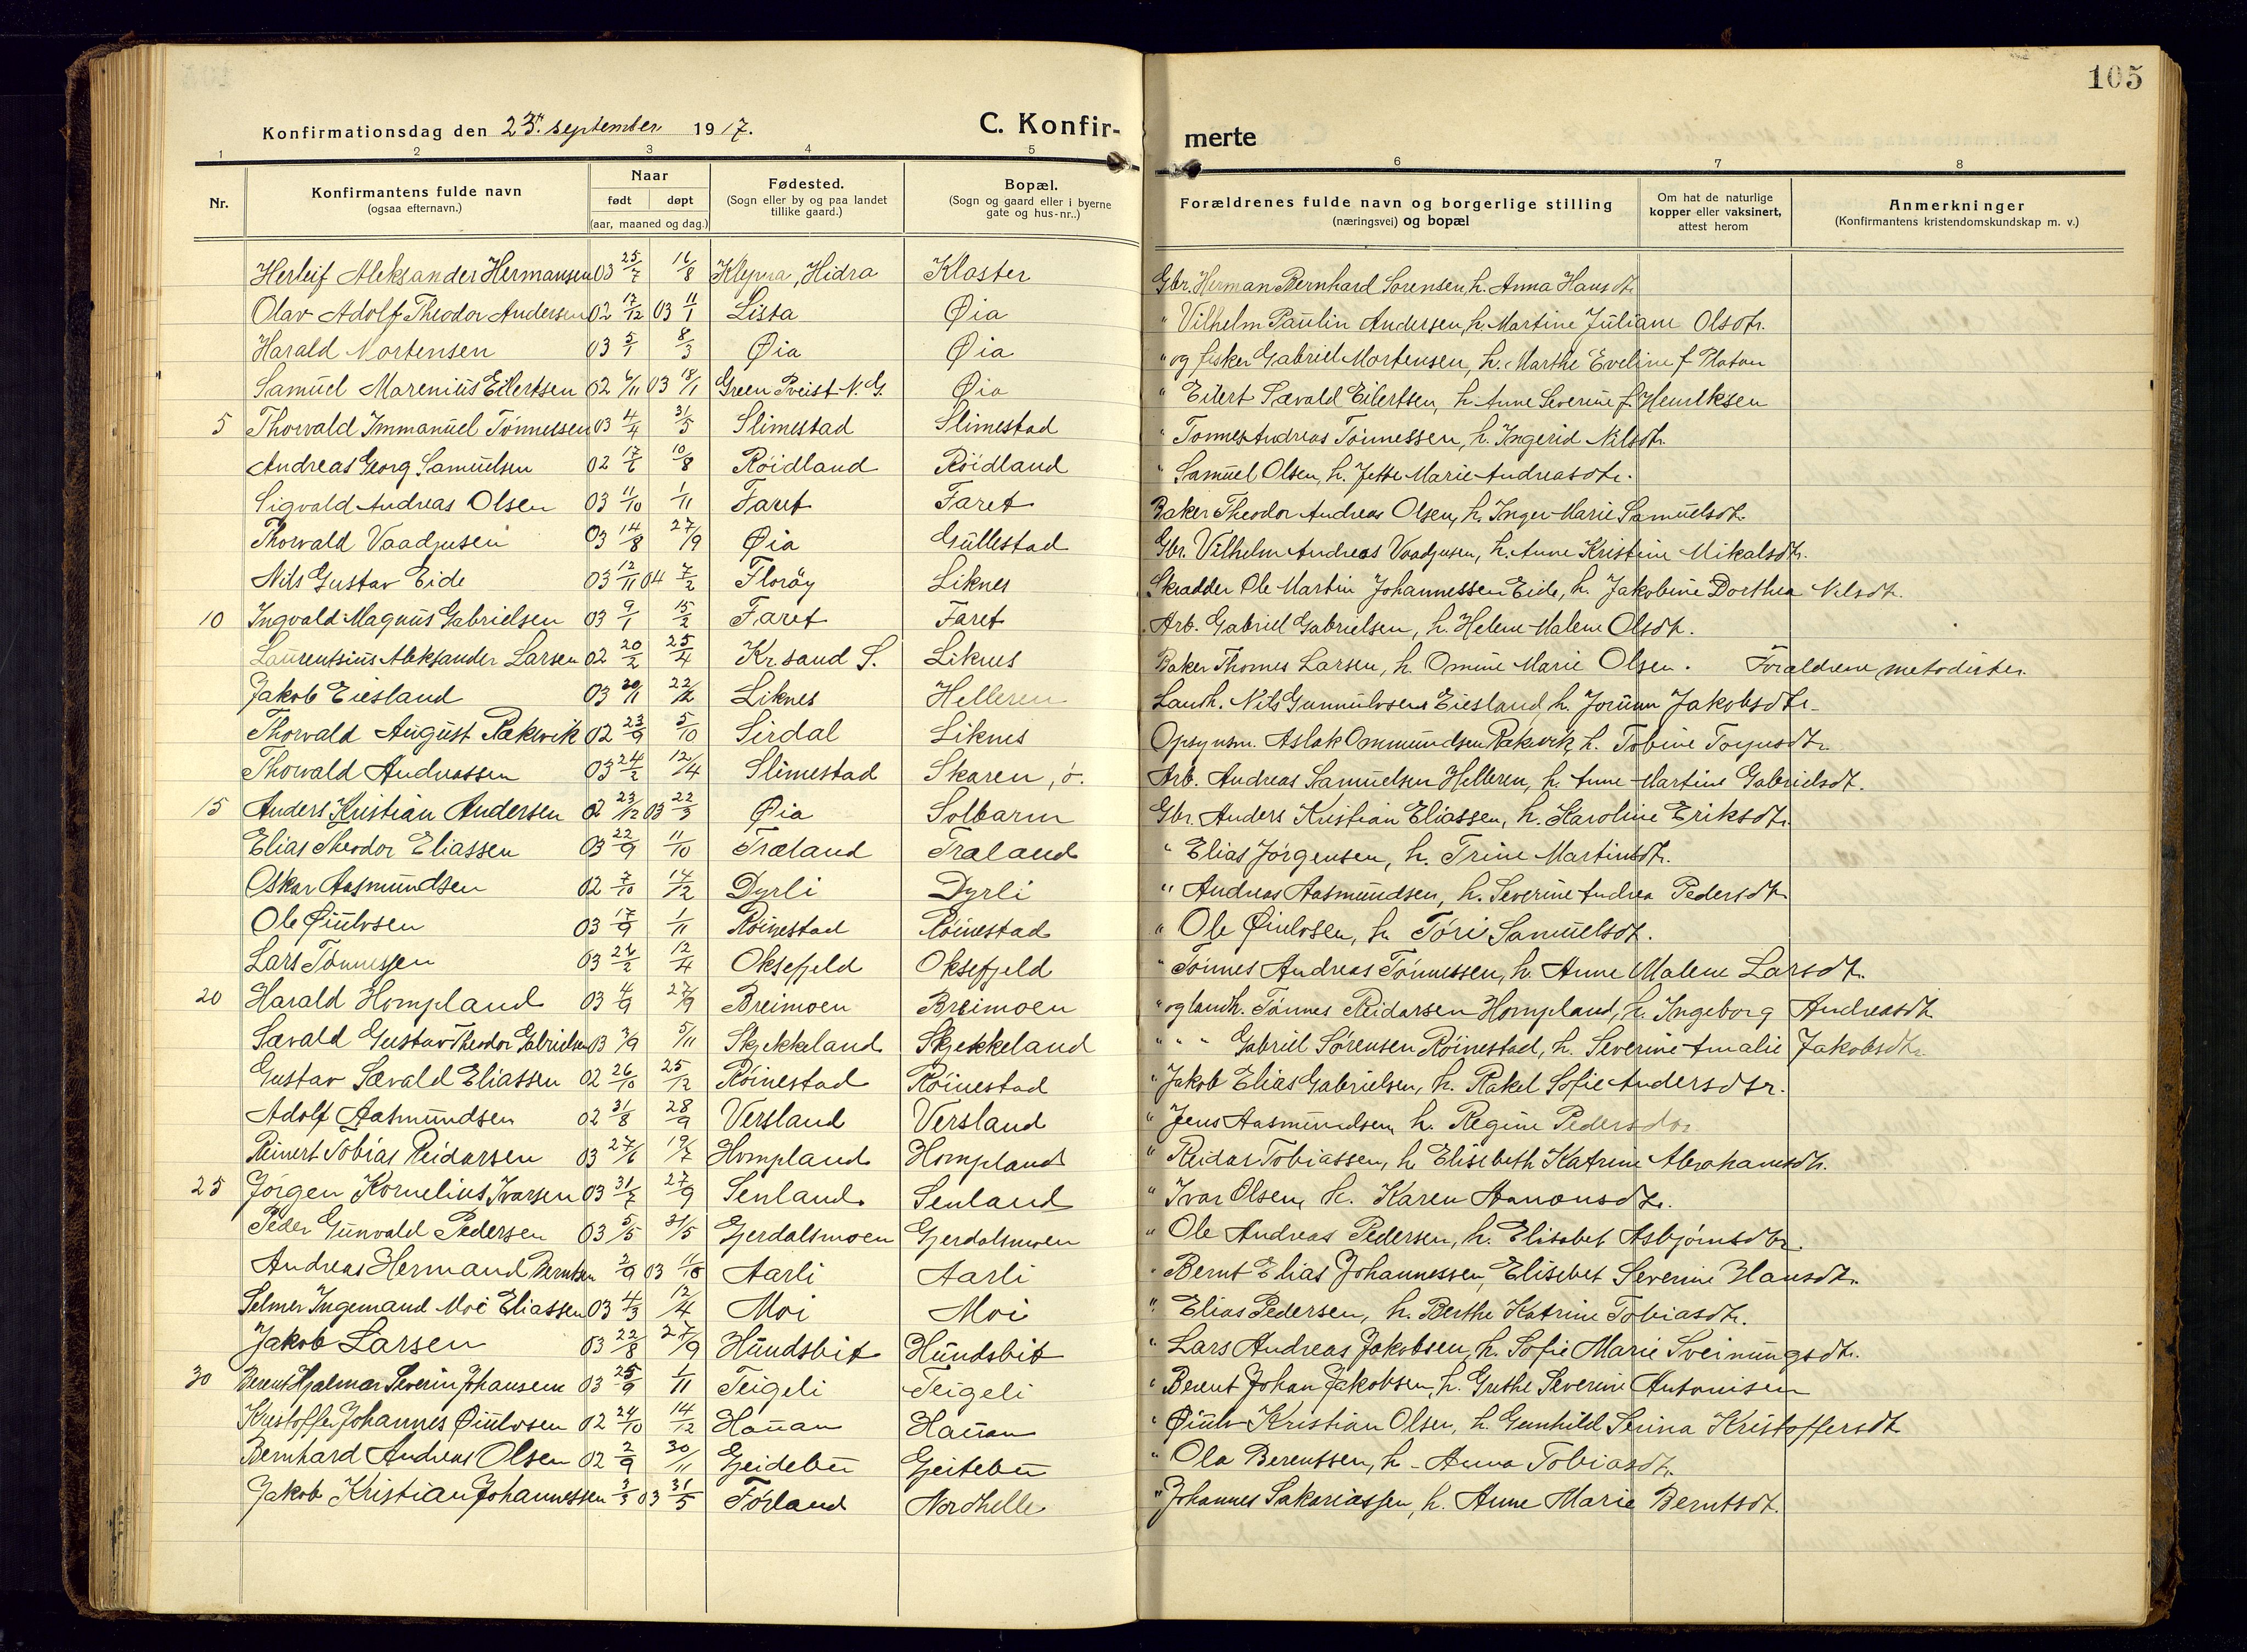 105
Konfirmationsdag den 23. september 1917.
C. Konfir-
merte
1 2 3 4 5 6 7 8
Nr.
Konfirmantens fulde navn
(ogsaa efternavn.)
Naar
født døpt
(aar, maaned og dag.)
Fødested.
(Sogn eller by og paa landet
tillike gaard.)
Bopæl.
(Sogn og gaard eller i byerne
gate og hus-nr..)
Forældrenes fulde navn og borgerlige stilling
(næringsvei) og bopæl
Om hat de naturlige
kopper eller vaksinert,
attest herom
Anmerkninger
(Konfirmantens kristendomskundskap m. v.)
Herleif Aleksander Hermansen 03 25/7 16/8 Hidra Kloster Gbr. Herman Bernhard Sørensen, h. Anna Hansdtr.
Olav Adolf Theodor Andersen 02 17/12 03 11/1 Lista Øia " Vilhelm Paulin Andersen, h. Martine Juliane Olsdtr.
Harald Mortensen 03 5/1 8/3 Øia Øia " og fisker Gabriel Mortensen, h. Marthe Eveline f. Platou
Samuel Marenius Eilertsen 02 6/11 03 18/1 Green Øia " Eilert Sævald Eilertsen, h. Anne Severine f. Henriksen
5 Thorvald Immanuel Tønnessen 03 4/4 31/5 Slimestad Slimestad " Tønnes Andreas Tønnessen, h. Ingerid Nilsdtr.
Andreas Georg Samuelsen 02 17/6 10/8 Røidland Røidland " Samuel Olsen, h. Jette Marie Andreasdtr.
Sigvald Andreas Olsen 03 11/10 1/11 Faret Faret Baker Theodor Andreas Olsen, h. Inger Marie Samuelsdtr.
Thorvald Vaadjusen 03 14/8 27/9 Øia Gullestad Gbr. Vilhelm Andreas Vaadjusen, h. Anne Kristine Mikalsdtr.
Nils Gustav Eide 03 12/11 04 7/2 Florøy Liknes Skrædder Ole Martin Johannessen Eide, h. Jakobine Dorthea Nilsdtr.
10 Ingvald Magnus Gabrielsen 03 9/1 15/2 Faret Faret Arb. Gabriel Gabrielsen, h. Helene Malene Olsdtr.
Laurentsius Aleksander Larsen 02 20/2 25/4 Kr.sand S. Liknes Baker Thomes Larsen, h. Omine Marie Olsen. Forældrene metodister.
Jakob Eiesland 03 20/11 22/12 Liknes Helleren Landh. Nils Gunnulvsen Eiesland h. Jorunn Jakobsdtr.
Thorvald August Rakevik 02 23/9 5/10 Sirdal Liknes Opsynsm. Aslak Ommundsen Rakevik, h. Tobine
Thorvald Andreassen 03 24/2 12/4 Slimestad Skaren, ø. Arb. Andreas Samuelsen Helleren, h. Anne Martine Gabrielsdtr.
15 Anders Kristian Andersen 02 23/12 03 22/3 Øia Solbarm Gbr. Anders Kristian Eliassen, h. Karoline Eriksdtr.
Elias Theodor Eliassen 03 22/9 11/10 Træland Træland " Elias Jørgensen, h. Trine Martinsdtr.
Oskar Aasmundsen 02 7/10 14/12 Dyrli Dyrli " Andreas Aasmundsen, h. Severine Andrea Pedersdtr.
Ole Øiulvsen 03 17/9 1/11 Røinestad Røinestad " Ole Øiulvsen, h. Tøri Samuelsdtr.
Lars Tønnessen 03 12/4 Oksefjeld Oksefjeld " Tønnes Andreas Tønnessen, h. Anne Malene Larsdtr.
20 Harald Hompland 03 4/9 27/9 Breimoen Breimoen " og landh. Tønnes Reidarsen Hompland, h. Ingeborg Andreasdtr.
Sævald Gustav Theodor Gabrielsen 03 3/9 5/11 Skjekkeland Skjekkeland " " " Gabriel Sørensen Røinestad, h. Severine Amalie Jakobsdtr.
Gustav Sævald Eliassen 02 26/10 25/12 Røinestad Røinestad " Jakob Elias Gabrielsen, h. Rakel Sofie Andersdtr.
Adolf Aasmundsen 02 31/8 28/9 Versland Versland " Jens Aasmundsen, h. Regine Pedersdtr.
Reinert Tobias Reidarsen 03 27/6 19/7 Hompland Hompland " Reidar Tobiassen, h. Elisebeth Katrine Abrahamsdtr.
25 Jørgen Kornelius Ivarsen 03 27/9 Senland Senland " Ivar Olsen, h. Karen
Peder Gunvald Pedersen 03 5/5 31/5 Gjerdalsmoen Gjerdalsmoen " Ole Andreas Pedersen, h. Elisabet Asbjørnsdtr.
Andreas Hermand Berntsen 03 11/10 Aarli Aarli " Bernt Elias Johannessen, Elisebet Severine Hansdtr.
Selmer Ingemand Moi Eliassen 03 4/3 12/4 Moi Moi " Elias Pedersen, h. Berthe Katrine Tobiasdtr.
Jakob Larsen 03 22/8 27/9 Hundsbit Hundsbit " Lars Andreas Jakobsen, h. Sofie Marie Sveinungsdtr.
30 Berent Hjalmar Severin Johansen 03 25/9 1/11 Teigeli Teigeli " Berent Johan Jakobsen, h. Grethe Severine Antonisen
Kristoffer Johannes Øiulvsen 02 24/10 14/12 Hauan Hauan " Øiulv Kristian Olsen, h. Gunhild Serina Kristoffersdtr.
Bernhard Andreas Olsen 02 2/9 30/11 Geidebu Geitebu " Ola Berentsen, h. Anna Tobiasdtr.
Jakob Kristian Johannessen 3/3 03 31/5 Førland Nordhelle " Johannes Sakariassen, h. Anne Marie Berntsdtr.